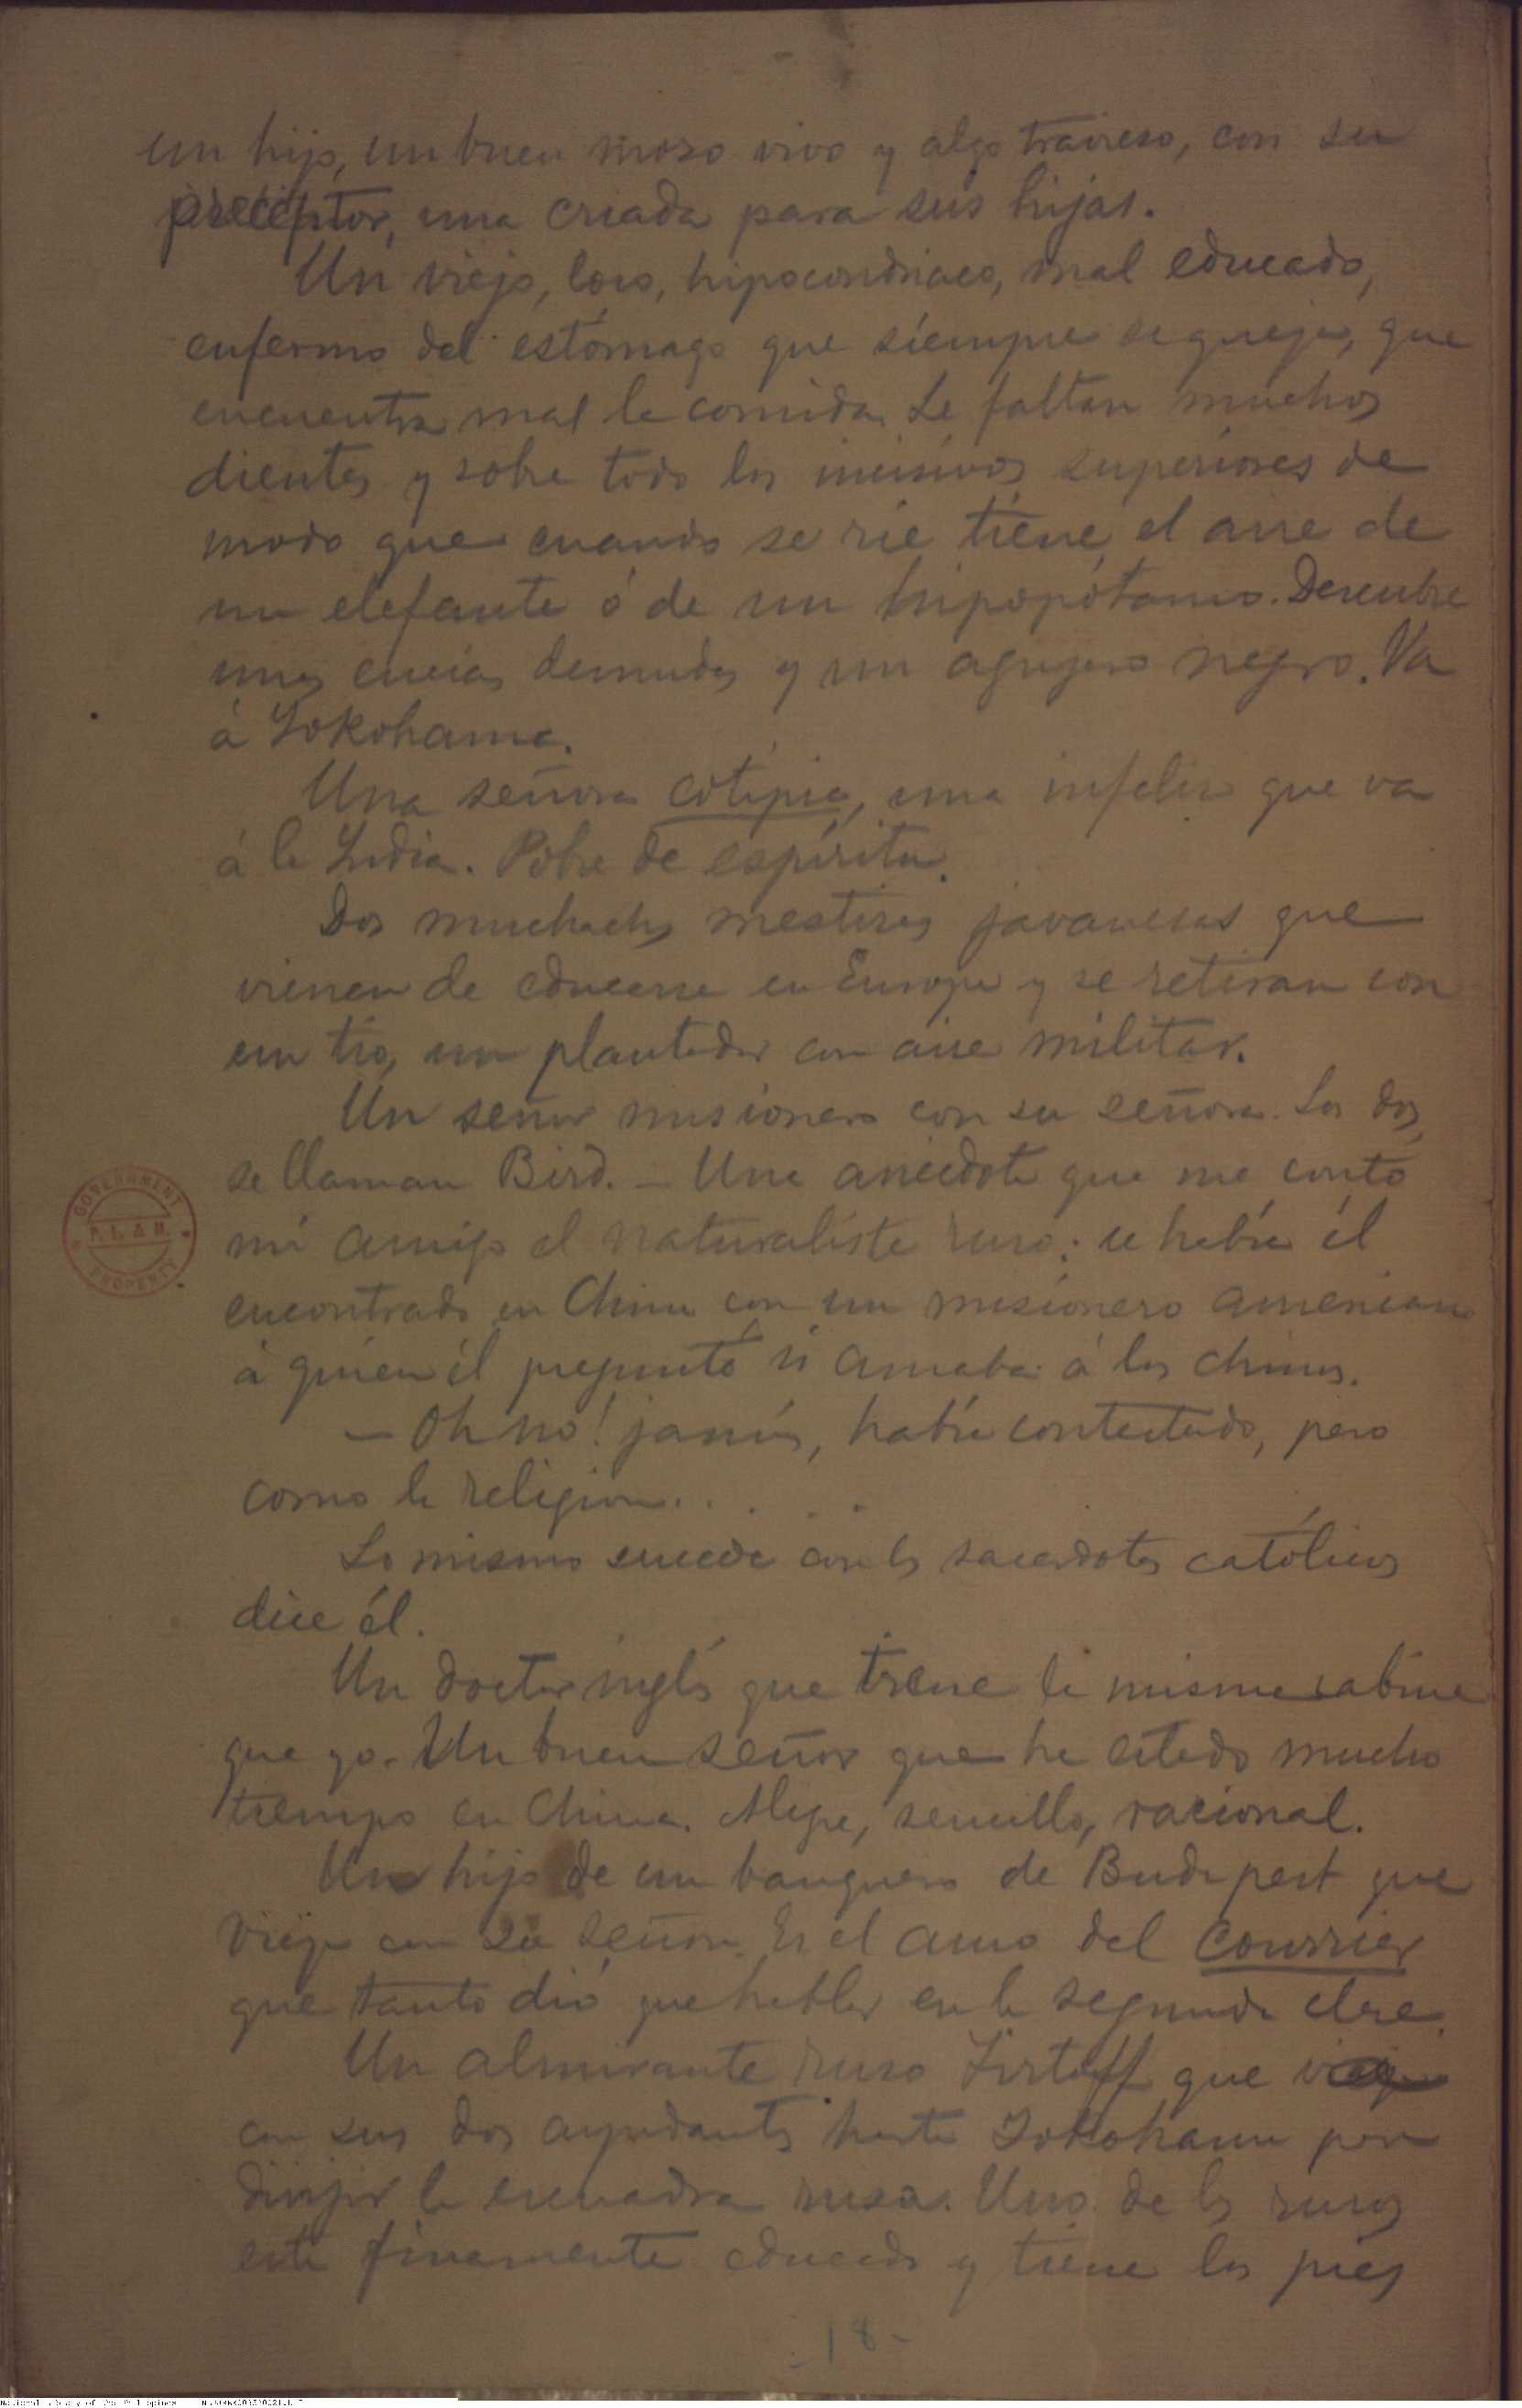 un hijo, un buen moso vivo y algo travieso, con su
preceptor, una criada para sus hijas.
Un viejo, loco, hipocondriaco, mal educado,
enfermo del estómago que siempre se queja, que
encuentra mal la comida. Le faltan muchos
dientes y sobre todo los incisivos superiores de
modo que cuando se rie tiene el aire de
un elefante ó de un hipopótamo. Descubre
unas encias desnudas y un agujero negro. Va
á Yokohama.
Una señora, una infeliz que va
á la India. Pobre de espíritu.
Dos muchachas mestizas javanesas que
vienen de educarse en Europa y se retiran con
un tio, un plantador con aire militar.
Un señor misionero con su señora. Los dos
se llaman Bird. — Una anécdota que me contó
mi amigo el naturalista ruso: se habia él
encontrado en China con un misionero americano
á quien él preguntó si amaba á los chinos.
— Oh no! jamás, habia contestado, pero
como la religion.....
Lo mismo sucede con los sacerdotes católicos
dice él.
Un doctor inglés que tiene la misma cabina
que yo. Un buen señor que ha estado mucho
tiempo en China. Alegre, sencillo, racional.
Un hijo de un banquero de Budapest que
viaja con su señora. Es el amo del courrier
que tanto dió que hablar en la segunda clase.
Un almirante ruso que viaja
con sus dos ayudantes hasta Yokohama para
dirijir la escuadra rusa. Uno de los rusos
está finamente educado y tiene los pies
- 18 -
GOVERNMENT
P. L. & M.
PROPERTY
National Library of the Philippines